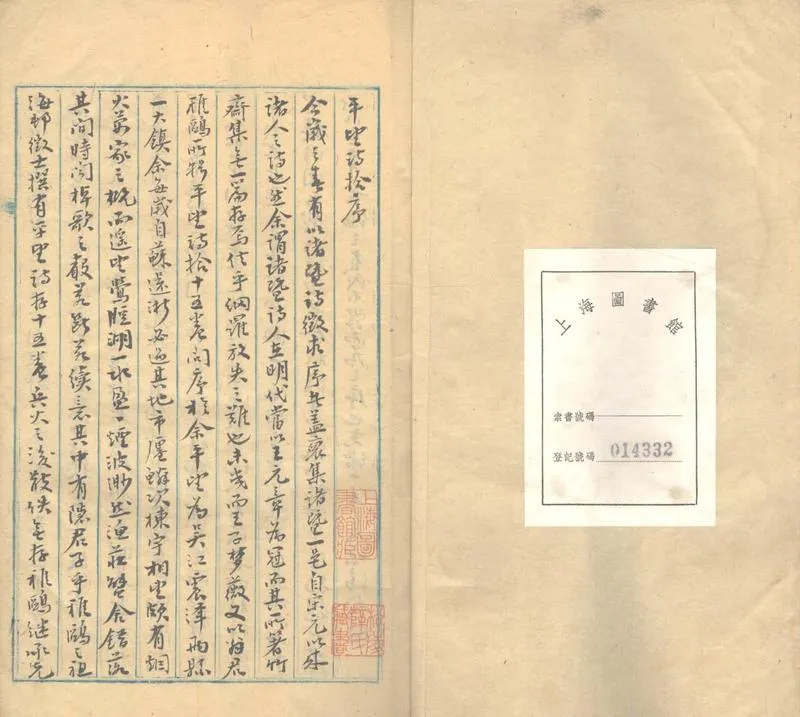 平望詩拾序
今歲之春有以諸暨詩徵求序者蓋裒集諸暨一邑自宋元以來
諸人之詩也然余謂諸暨詩人在明代當以王元章為冠而其所著竹
齋集無一篇存焉信乎網羅放失之難也未幾而王子夢薇又以翁君
稚鷗所輯平望詩拾十五卷問序於余平望為吳江震澤兩縣
一大鎮余每歲自蘇還浙必過其地市廛鱗次棟宇相望頗有烟
火萬家之概而遥望鶯脰湖一水盈盈煙波渺然漁莊蟹舍錯落
其間時聞棹歌之聲若斷若續意其中有隱君子乎稚鷗之祖
海邨徵士撰有平望詩存十五卷兵火之後散佚無存稚鷗繼承先
上海圖書館藏
上海圖書館
索書號碼
登記號碼 014332